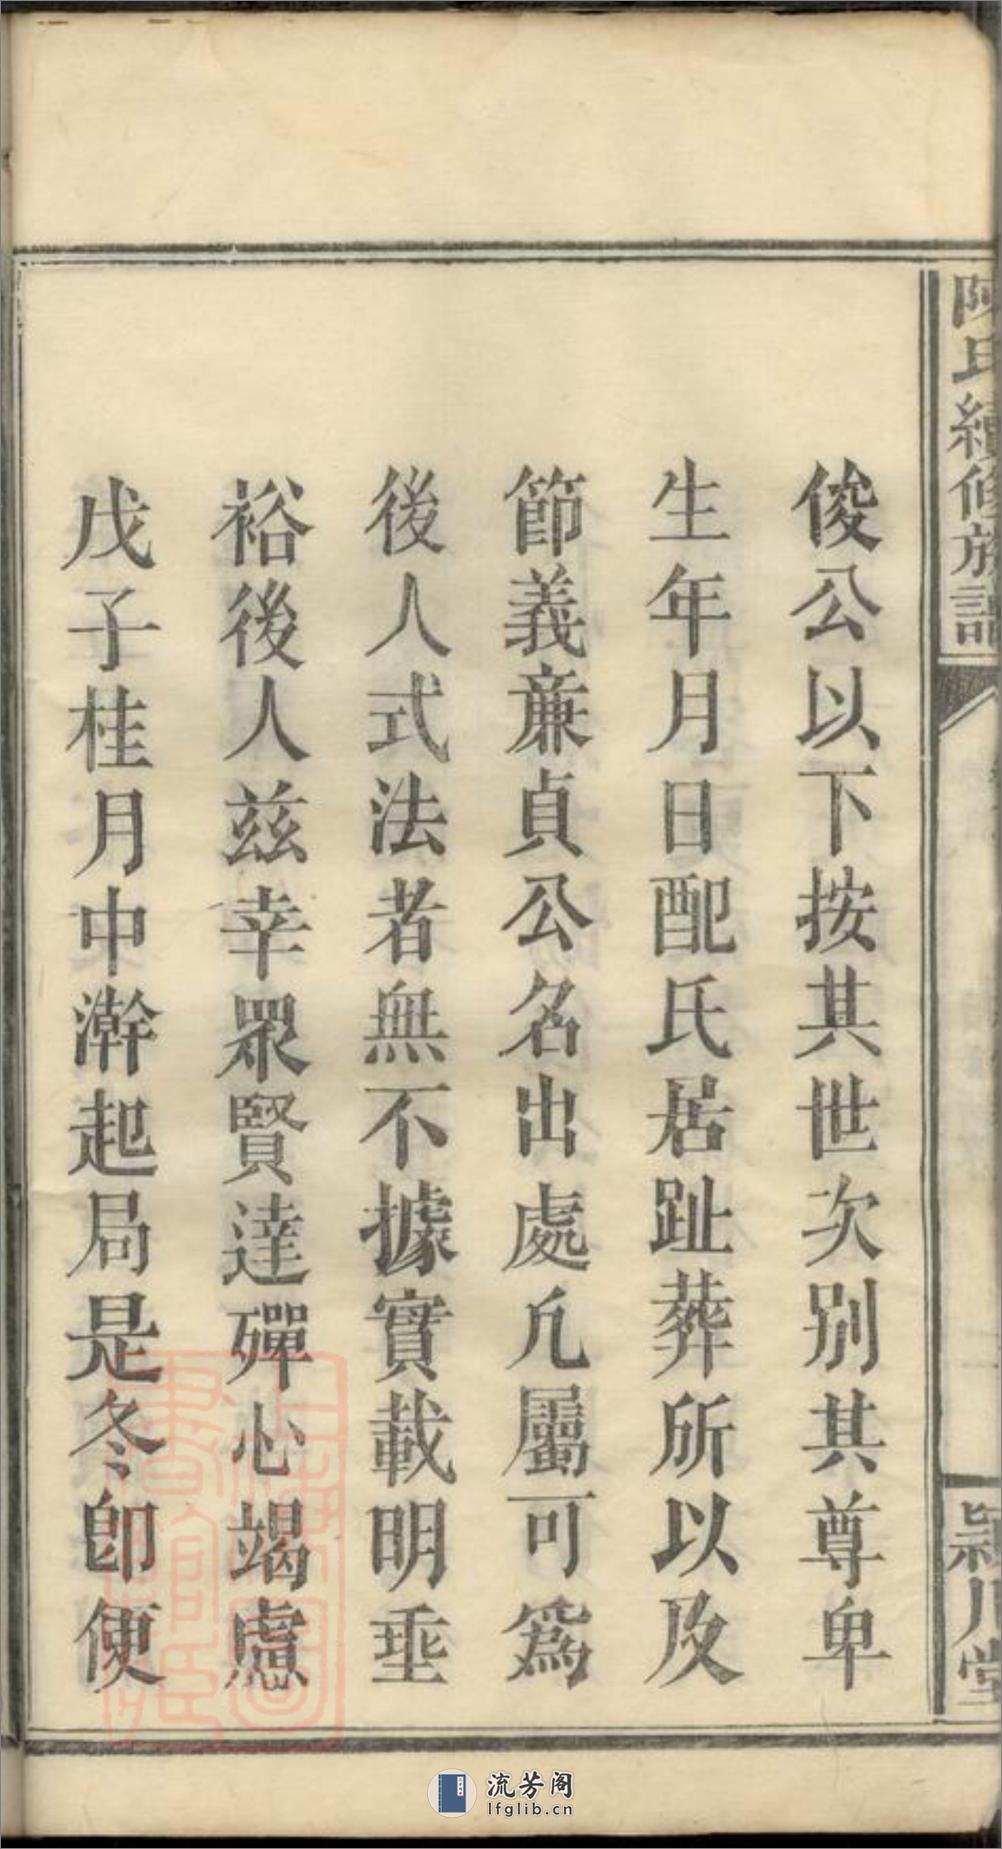 陳氏續修族譜
潁川堂
俊公以下按其世次別其尊卑
生年月日配氏居趾葬所以及
節義亷貞公名出處凢屬可爲
後人式法者無不據實載明垂
裕後人兹幸眾賢達殫心竭慮
戊子桂月中澣起局是冬卽便
流芳阁
lfglib.cn